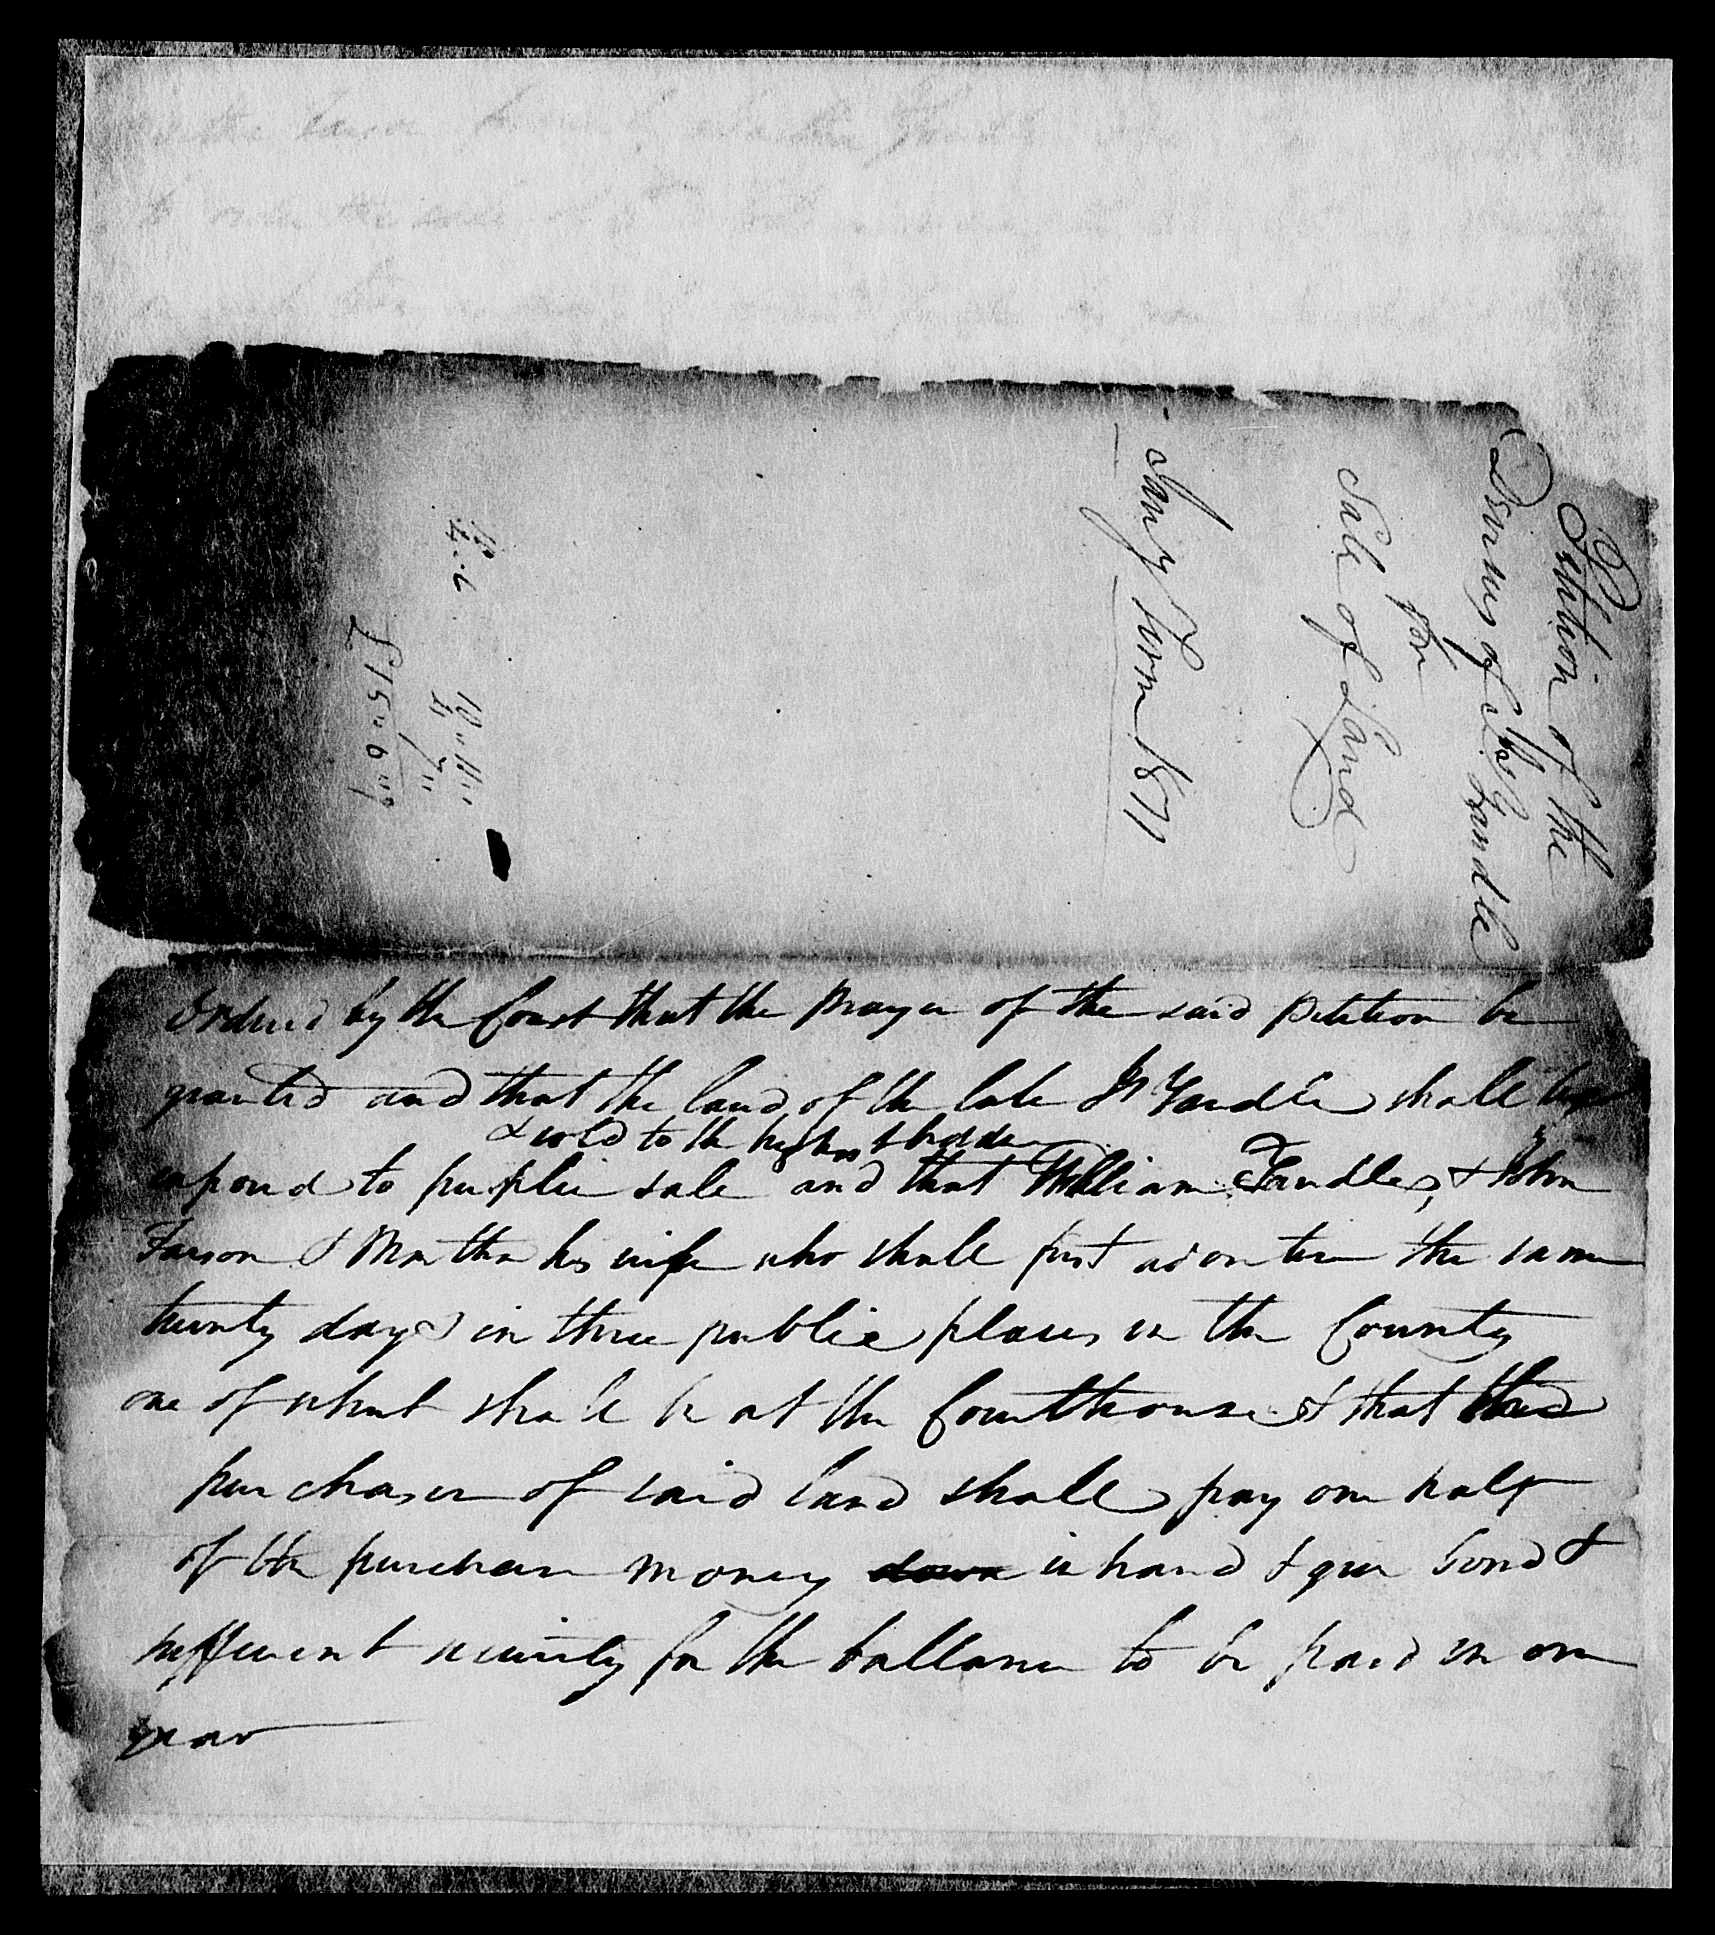 Petition of the
Devises of Yandle
for
Sale of Land
Jany Term 1871
4..6
10" 11"
4" 7"
£15" 6" 9
Ordered by the Court that the prayer of the said petition be
granted and that the land of the late Yandle shall be
& sold to the highest bidder
exposed to puplic sale and that William Yandle, & John
Farson & Martha his wife who shall first advertise the same
twenty days in three public places in the County
one of which shall be at the Courthouse & that the
purchaser of said land shall pay one half
of the purchase money down in hand & give bond &
sufficient security for the ballance to be paid in one
year